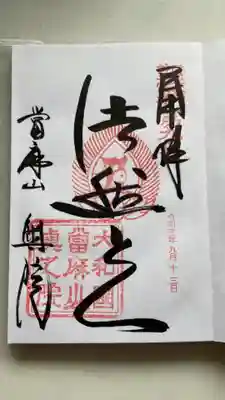 奉拝
九月十三日
法然上人
大和國
當麻山
奥之院
當麻山 奥院